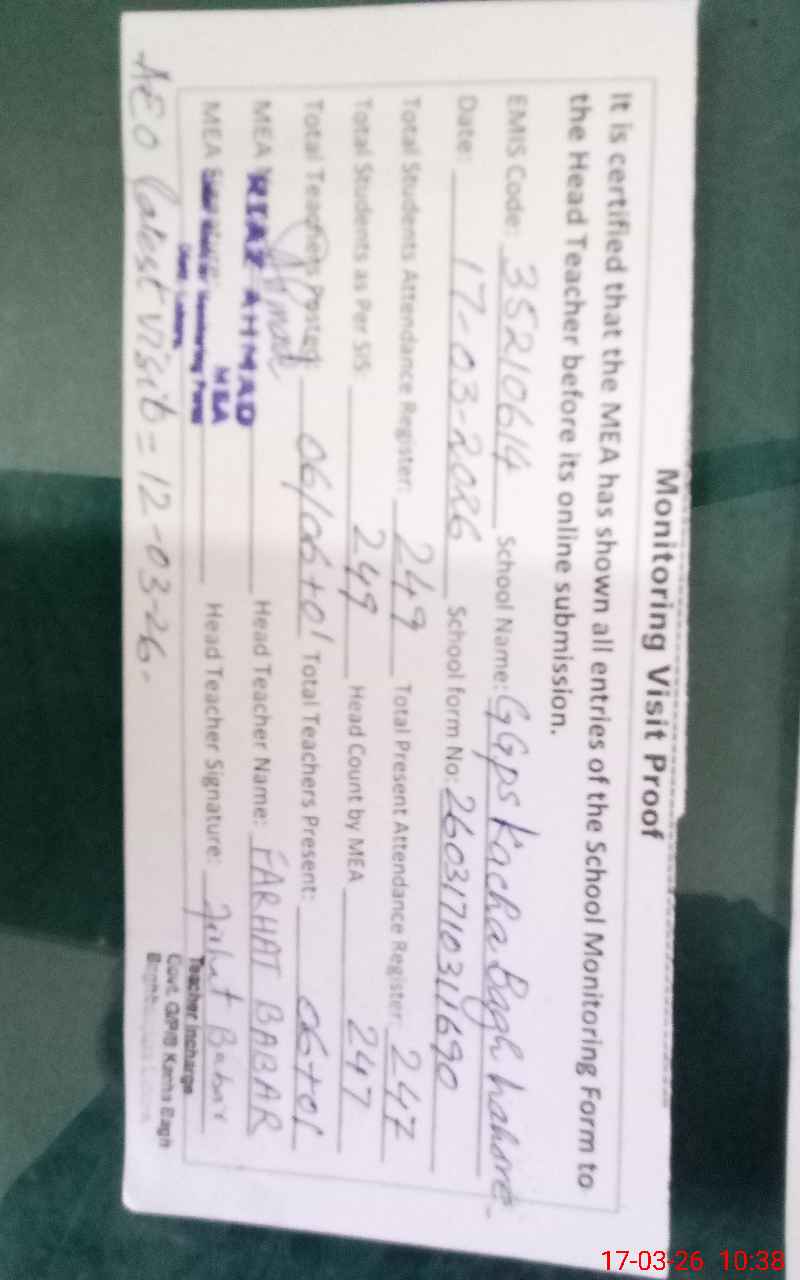 Monitoring Visit Proof
It is certified that the MEA has shown all entries of the School Monitoring Form to
the Head Teacher before its online submission.
EMIS Code: 35210614 School Name: GGPS Kacha Bagh Lahore.
Date: 17-03-2026 School form No: 26031710311690
Total Students Attendance Register: 249 Total Present Attendance Register: 247
Total Students as Per SIS: 249 Head Count by MEA 247
Total Teachers Posted: 06/06+01 Total Teachers Present: 06+01
MEA RIAZ AHMAD Head Teacher Name: FARHAT BABAR
MEA
MEA Head Teacher Signature: Farhat Babar
Teacher Incharge
Govt. G/P/S Kacha Bagh
AEO latest visit = 12-03-26.
17-03-26 10:38